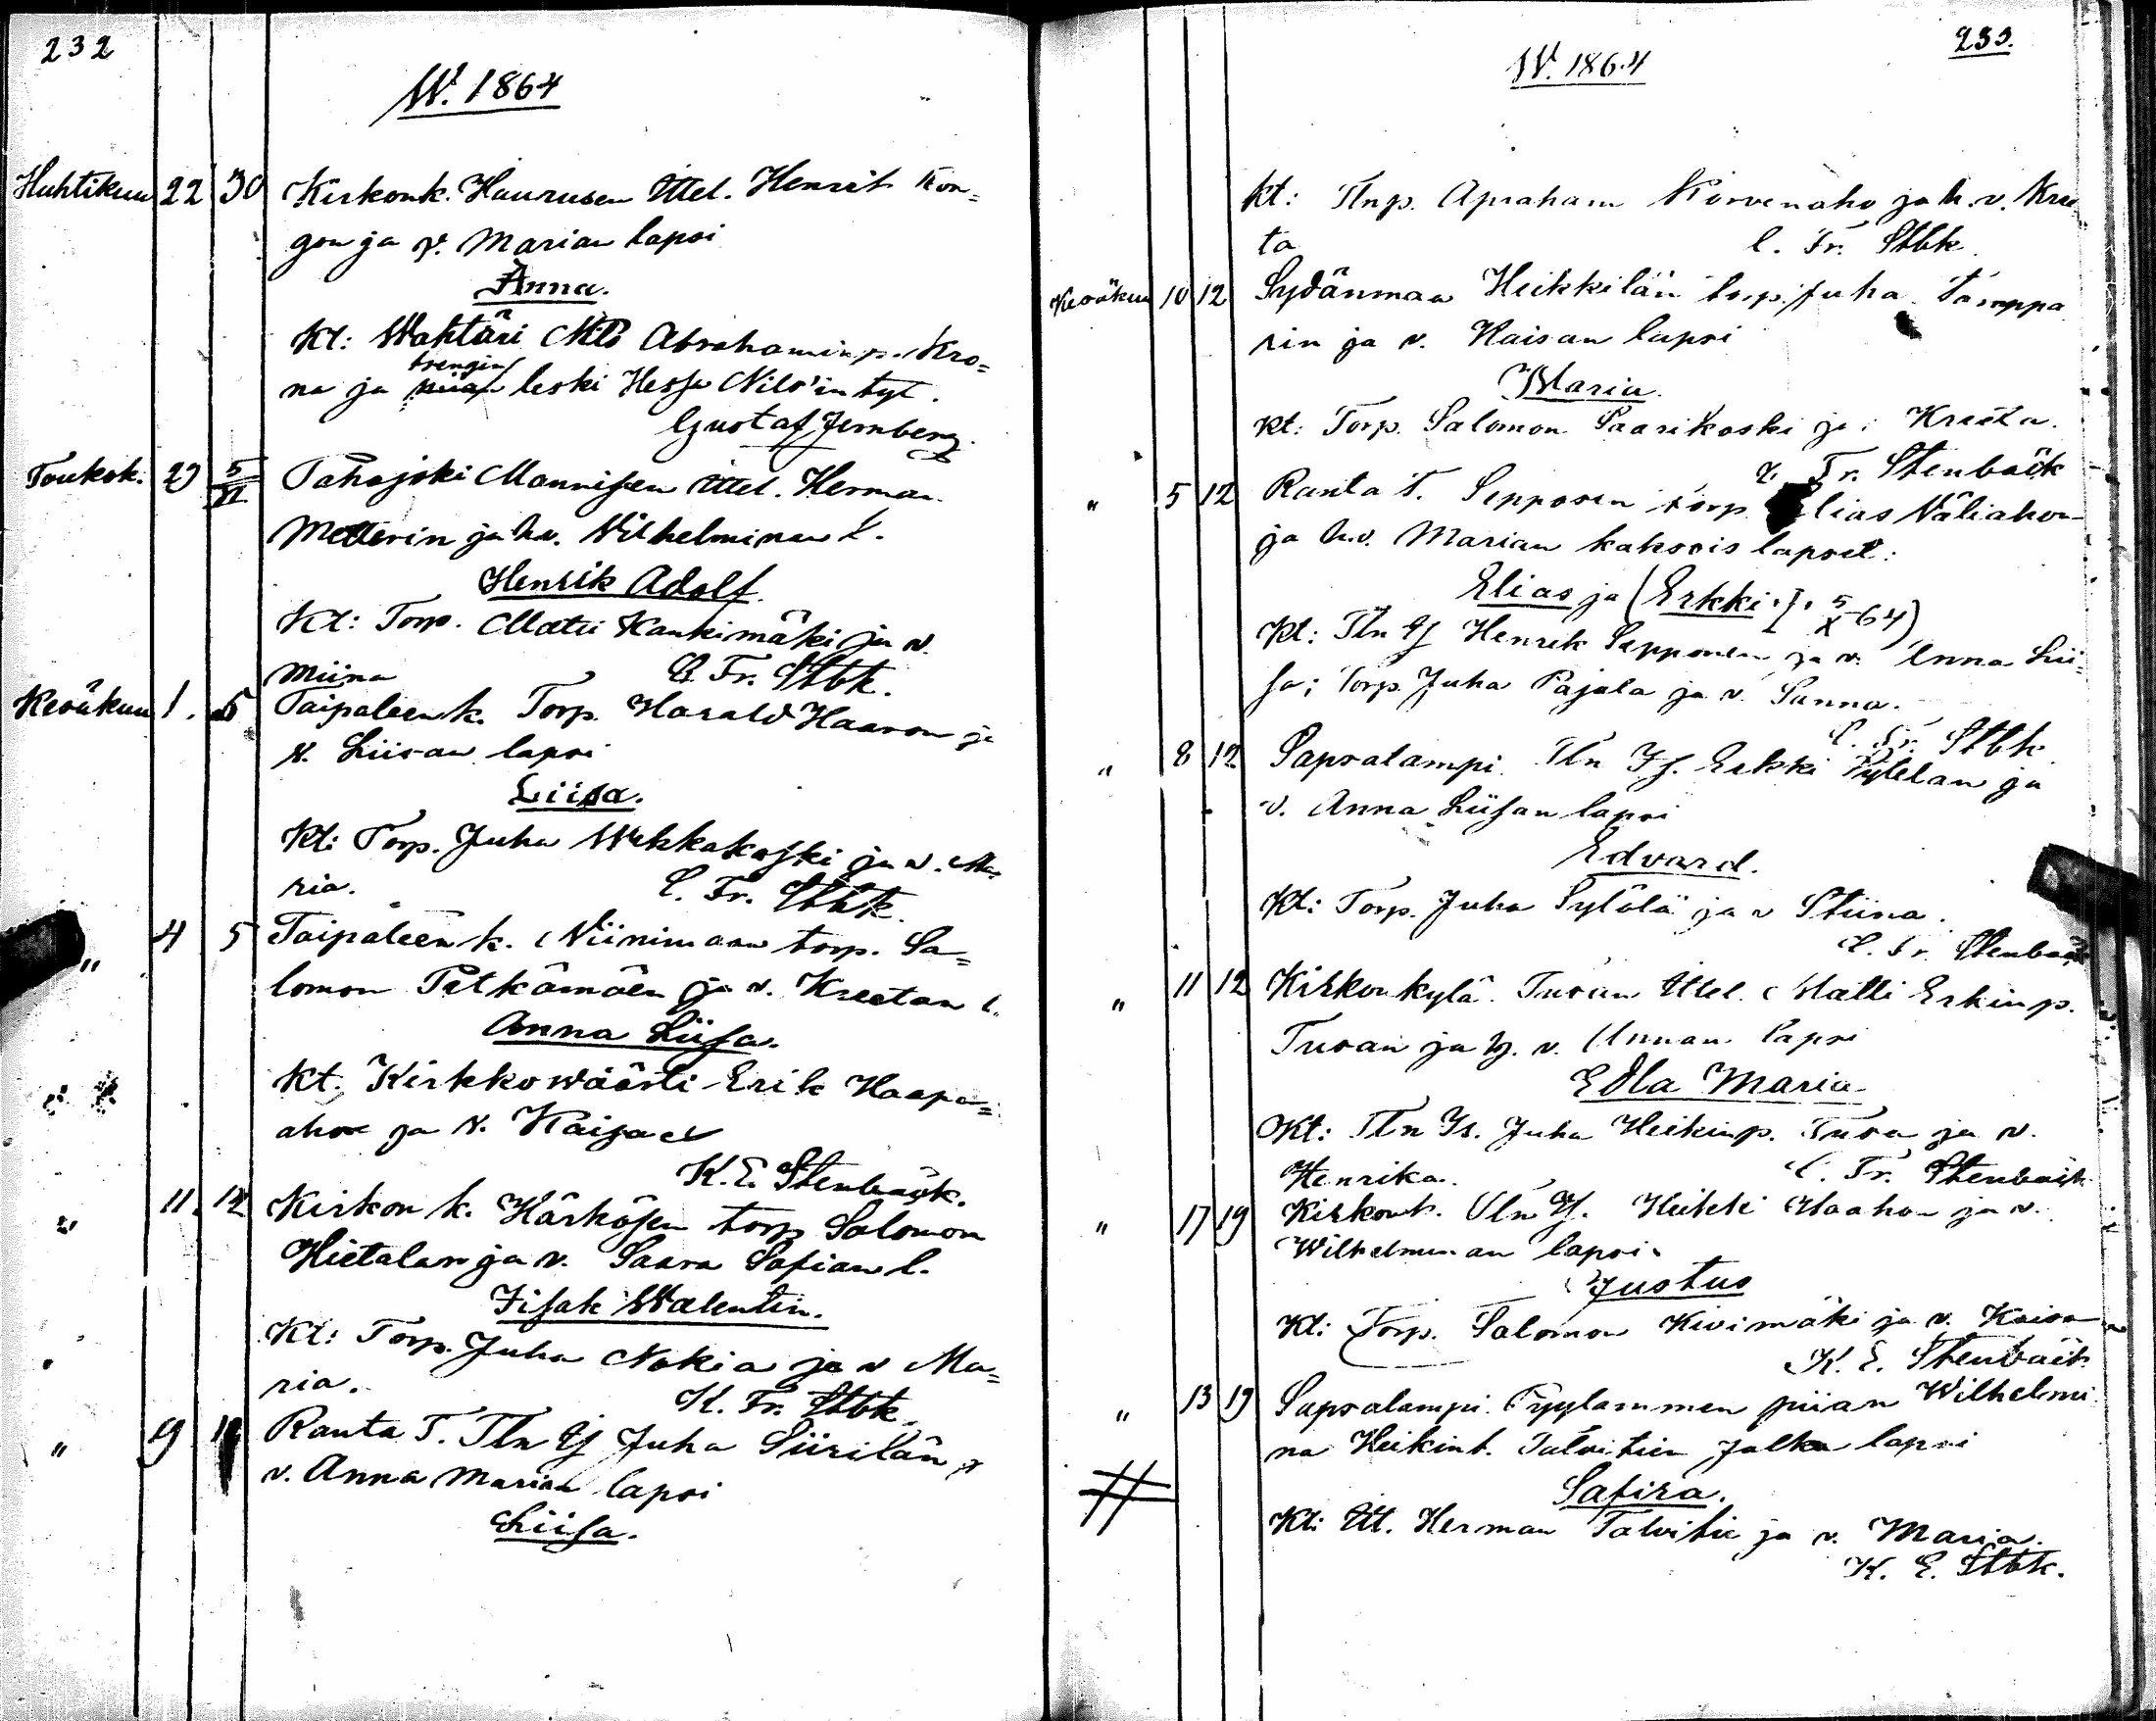 232
W. 1864
Huhtikuu 22 30 Kirkonk. Haurusen Ittel. Henrik Kon=
gon ja v. Marian lapsi
Anna.
Kt: Wahtäri Nils Abrahamin p. Kro=
trengin
na ja piian leski Hessa Nils'in tyt.
Gustaf Jernberg.
Toukok. 29 5/VI Pahajoki Mannisen Ittel. Herman
Metterin ja hv. Wilhelminan l.
Henrik Adolf.
Kt: Torp. Matti Kankimäki ja v.
Miina C. Fr. Stbk.
Kesäkuu 1. 5 Taipaleenk. Torp. Harald Haaron ja
v. Liisan lapsi
Liisa.
Kt: Torp. Juha Wehkakoski ja v. Ma=
ria. C. Fr. Stbk.
" 4 5 Taipaleen k. Niinimaan torp. Sa=
lomon Pitkämäen ja v. Kreetan l.
Anna Liisa.
Kt. Kirkkowäärti Erik Haapa=
aho ja v. Kaisa
K. E. Stenbäck.
11. 12 Kirkon k. Härkösen torp Salomon
Hietalan ja v. Saara Sofian l.
Iisak Walentin.
Kt: Torp. Juha Nokia ja v Ma=
ria. K. Fr. Stbk.
" 9 Ranta T. Tln Ij Juha Siirilän ja
v. Anna Marian lapsi
Liisa.
233.
W. 1864
kt: Tlnp. Apraham Korvenaho ja h. v. Kree
ta C. Fr. Stbk.
Kesäkuu 10 12 Sydänmaa Heikkilän torp. Juha Tamppa
rin ja v. Kaisan lapsi
Maria.
kt: Torp. Salomon Saarikoski ja Kreeta.
C. Fr. Stenbäck
" 5 12 Ranta T. Sepposen torp. Elias Väliahon
ja h.v. Marian kaksois lapset:
Elias ja (Erkki 5/X 64)
Kt: Tln Ij Henrik Sepponen ja v. Anna Lii=
sa; Torp. Juha Pajala ja v. Sanna.
C. Fr. Stbk.
" 8 12 Sapsalampi. Tln Ij. Erkki Pylelan ja
v. Anna Liisan lapsi
Edvard.
Kt: Torp. Juha Sylölä ja v Stiina.
C. Fr. Stenbäck
" 11 12 Kirkonkylä. Tusan Ittel. Matti Erkinp.
Tusan ja h. v. Annan lapsi
Edla Maria
Kt: Tln Is. Juha Heikinp. Tusa ja v.
Henrika. C. Fr. Stenbäck
" 17 19 Kirkonk. Tln Ij. Heikki Haahon ja v.
Wilhelminan lapsi
Justus
Kt: Torp. Salomon Kivimäki ja v. Kaisa
K. E. Stenbäck
" 13 19 Sapsalampi. Pyylammen piian Wilhelmi
na Heikint. Talvitien Jalka lapsi
Safira.
Kt: Itt. Herman Talvitie ja v. Maria.
K. E. Stbk.